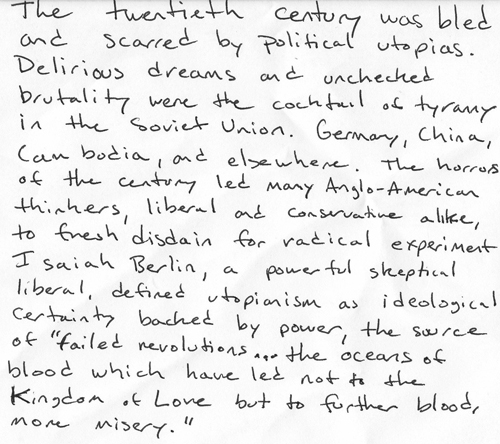 The twentieth century was bled
and scarred by political utopias.
Delirious dreams and unchecked
brutality were the cocktail of tyranny
in the Soviet Union. Germany, China,
Cambodia, and elsewhere. The horrors
of the century led many Anglo-American
thinkers, liberal and conservative alike,
to fresh disdain for radical experiment
Isaiah Berlin, a powerful skeptical
liberal, defined utopianism as ideological
certainty backed by power, the source
of "failed revolutions... the oceans of
blood which have led not to the
Kingdom of Love but to further blood,
more misery."